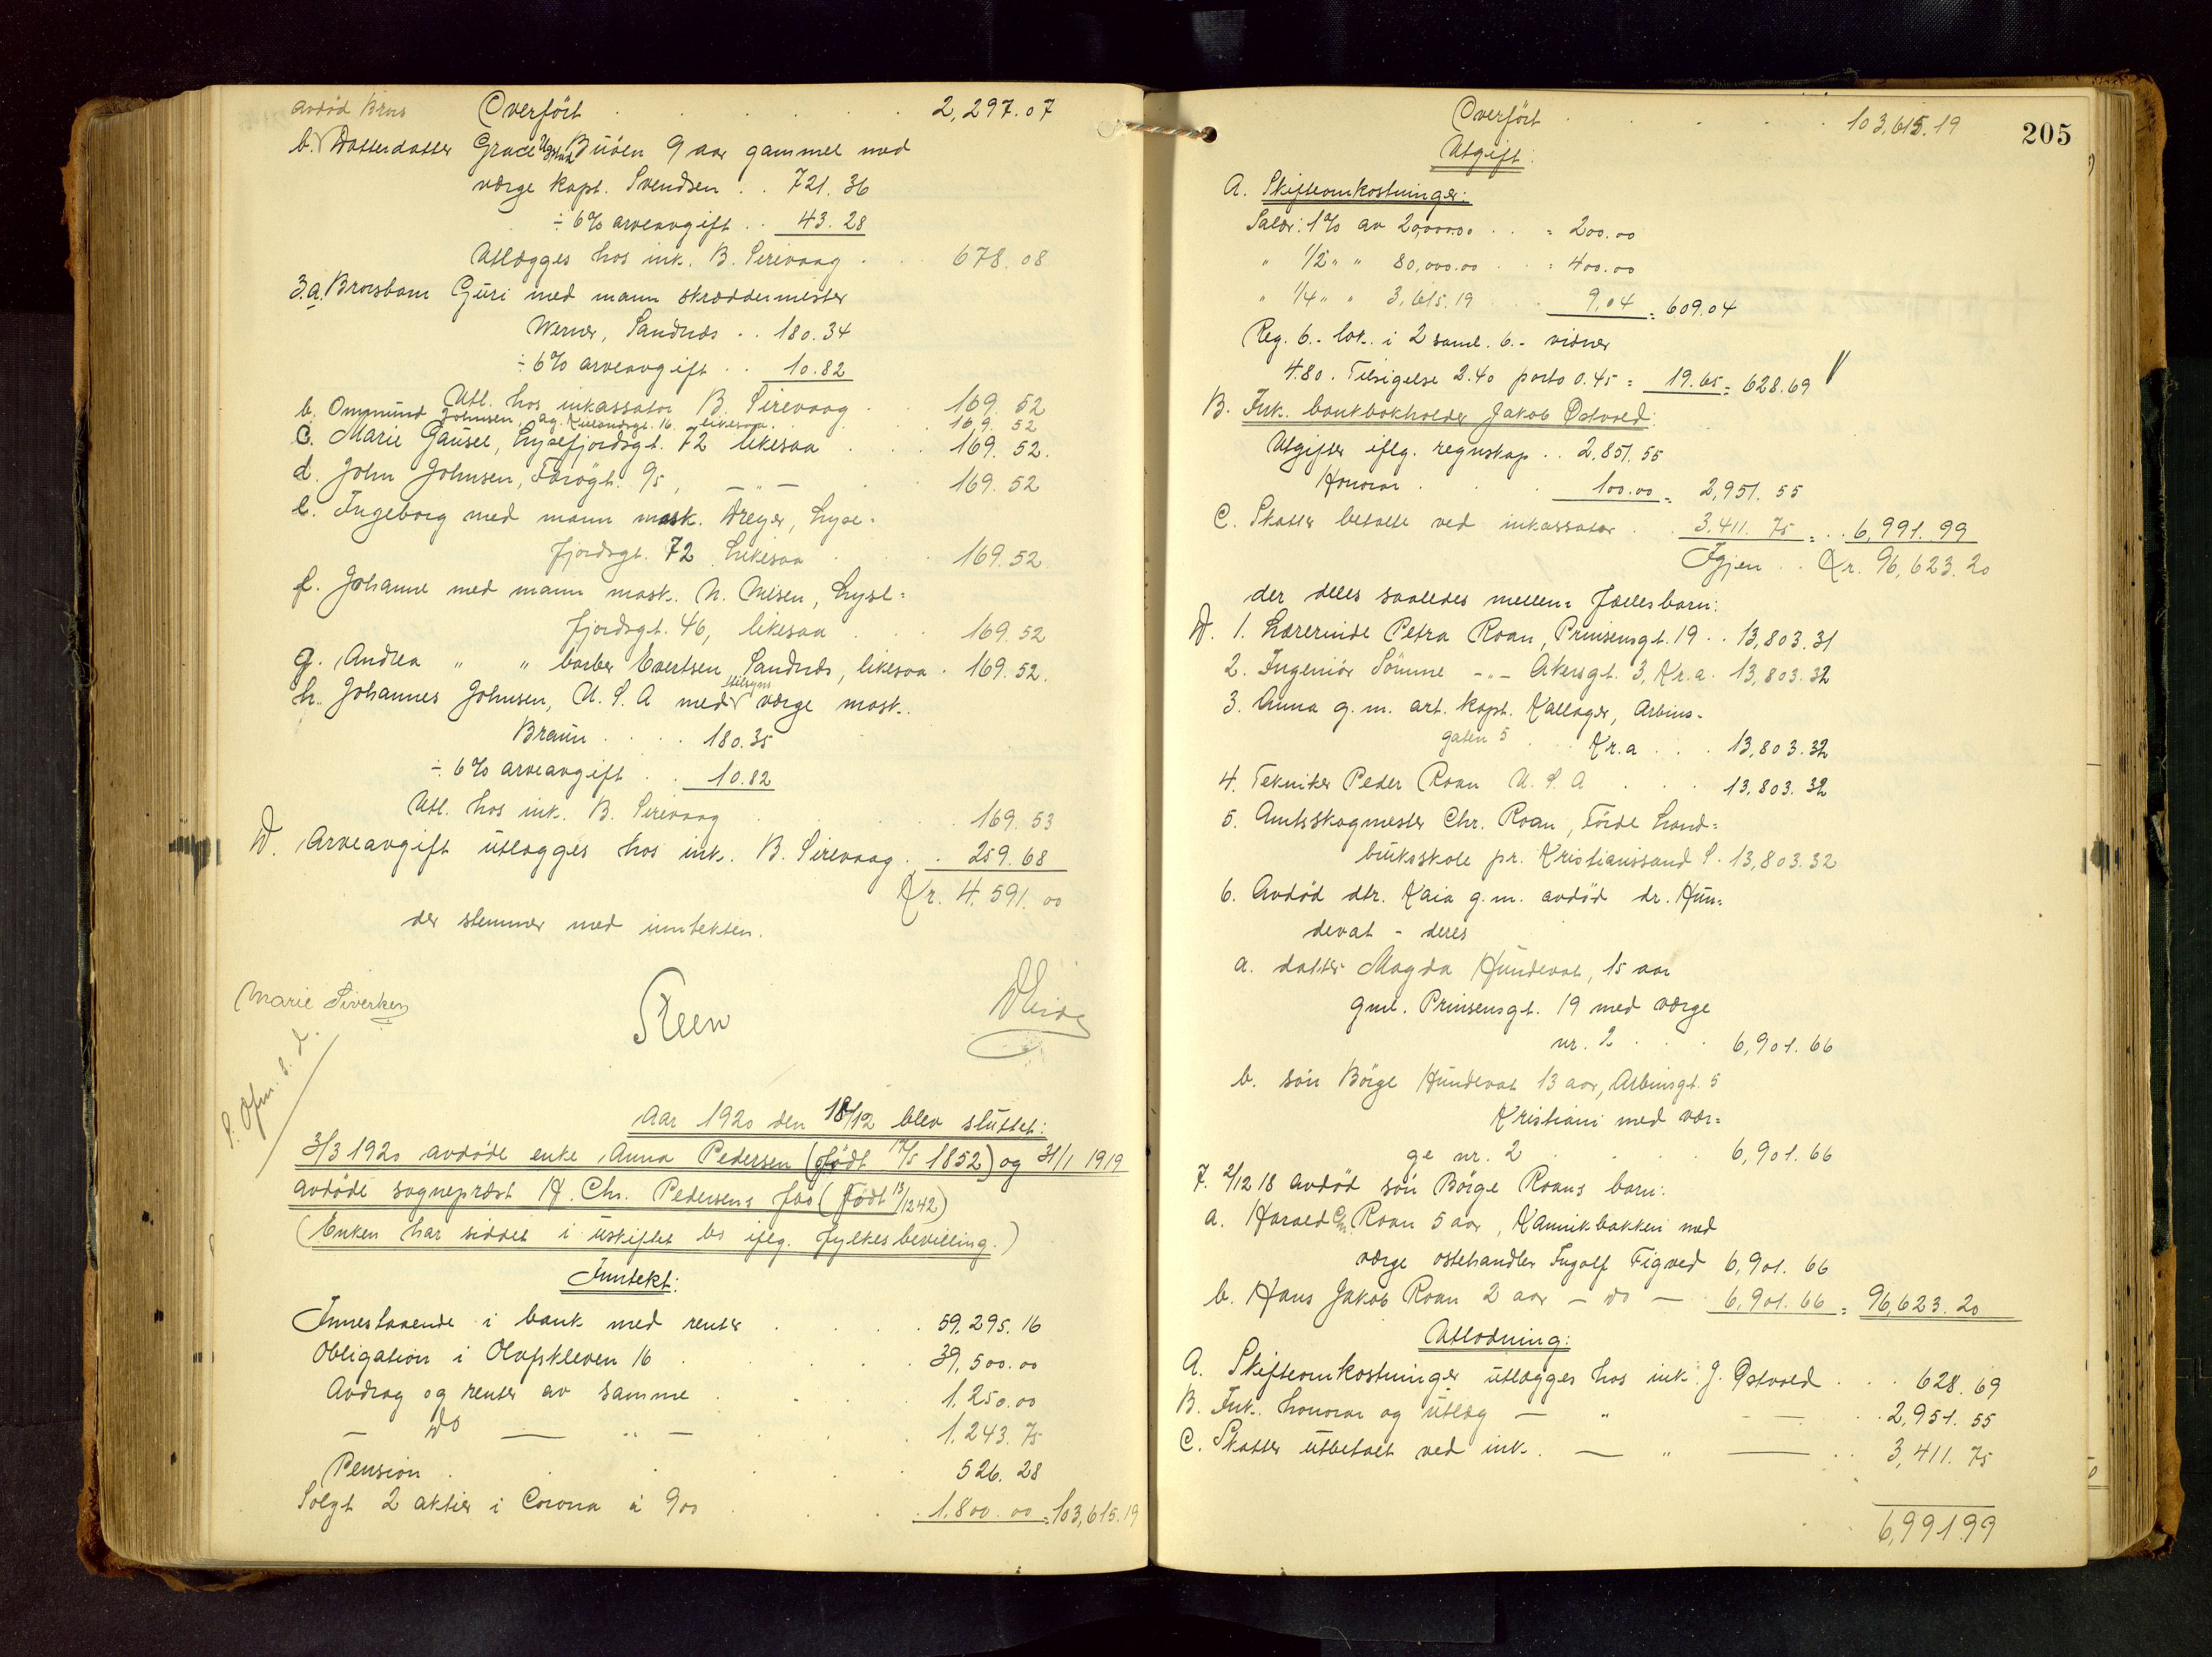 avdød Brors Overfört . . . . . 2,297.07
b. Datterdatter Grace Buöen 9 aar gammel med
værge kapt. Svendsen . . 721.36
÷ 6% arveavgift . . 43.28
Utlægges hos ink. B. Sirevaag . . 678.08
3.a. Brorsbarn Guri med mann skræddermester
Werner, Sandnæs . . 180.34
÷ 6% arveavgift . . 10.82
Utl. hos inkassator B. Sirevaag . . 169.52
b. Ommund Johnsen, Ag. Kiellandsgt. 16. likesaa . . 169.52
c. Marie Gausel, Lysefjordsgt. 72 likesaa . . 169.52.
d. John Johnsen, Färögt. 9/5, — " — . . 169.52
e. Ingeborg med mann mask. Dreyer, Lyse-
fjordsgt. 72 Likesaa . . 169.52.
f. Johanne med mann mask. N. Nilsen, Lyse=
fjordsgt. 46, likesaa . . 169.52
g. Andrea " " barber Evertsen, Sandnæs, likesaa . 169.52.
h. Johannes Johnsen, U.S.A med tilsyns værge mask.
Braun . . . . 180.35
÷ 6% arveavgift . . 10.82
Utl. hos ink. B. Sirevaag . . 169.53
D. Arveavgift utlægges hos ink. B. Sirevaag . . 259.68
Kr. 4.591.00
der stemmer med inntekten.
Marie Siverksen
Steen
Aar 1920 den 18/12 blev sluttet:
3/3 1920 avdøde enke Anna Pedersen (født 17/5 1852) og 31/1 1919
avdöde sogneprest H. Chr. Pedersens fbo (født 13/12 42)
(Enken har siddet i uskiftet bo iflg. fylkesbevilling.)
Inntekt:
Innestaaende i bank med renter . . . . 59.295.16
Obligation i Olafskleven 16 . . . . 39.500.00
Avdrag og renter av samme . . . 1.250.00
— Do — " — . . . 1.243.75
Pension . . . . 526.28
Solgt 2 aktier i Corona á 900 . . . 1.800.00 = 103,615.19
205
Overfört . . . . 103,615.19
Utgift:
A. Skifteomkostninger:
Salær: 1% av 20,000.00 . . = 200.00
" 1/2 " " 80,000.00 . . = 400.00
" 1/4 " " 3,615.19 . . 9,04 = 609.04
Reg. 6.- lok. i 2 saml. 6.- vidner
4.80. Tilsigelse 2.40 porto 0.45 = 19.65 = 628.69
B. Ink. bankbokholder Jakob Østvold:
Utgifter iflg. regnskap . . 2.851.55
Honorar . . . 100.00 = 2,951.55
C. Skatter betalte ved inkassator . . 3.411.75 = . . 6,991.99
Igjen . . Kr. 96,623.20
der deles saaledes mellem Fællesbarn:
D. 1. Lærerinde Petra Roan, Prinsensgt. 19 . . 13,803.31
2. Ingeniör Sömme — " — Akersgt. 3, Kr.a. 13,803.32
3. Anna g.m. art. kapt. Kallager, Arbins-
gaten 5 . . Kr.a . . . 13,803.32
4. Tekniker Peder Roan U.S.A . . . 13.803.32
5. Amtsskogmester Chr. Roan, Förde Land=
bruksskole pr. Kristianssand S. 13,803.32
6. Avdød dtr. Kaia g.m. avdød dr. Hun=
devat - deres
a. datter Magda Hundevat, 15 aar
gml. Prinsensgt. 19 med værge
nr. 2 . . . 6,901.66
b. sön Börge Hundevat 13 aar, Arbinsgt. 5
Kristiani med vær=
ge nr. 2 . . . . 6,901.66
7. 2/12 18 avdød sön Börge Roans barn:
a. Harald Chr. Roan 5 aar, Kannikbakken med
værge ostehandler Ingolf Figved 6,901.66
b. Hans Jakob Roan 2 aar — Do — 6,901.66 = 96,623.20
Utlodning:
A. Skifteomkostninger utlægges hos ink. J. Østvold . . . 628.69
B. Ink. honorar og utlæg — " — — . . 2,951.55
C. Skatter utbetalt ved ink. — " — . . 3,411.75
6,991.99